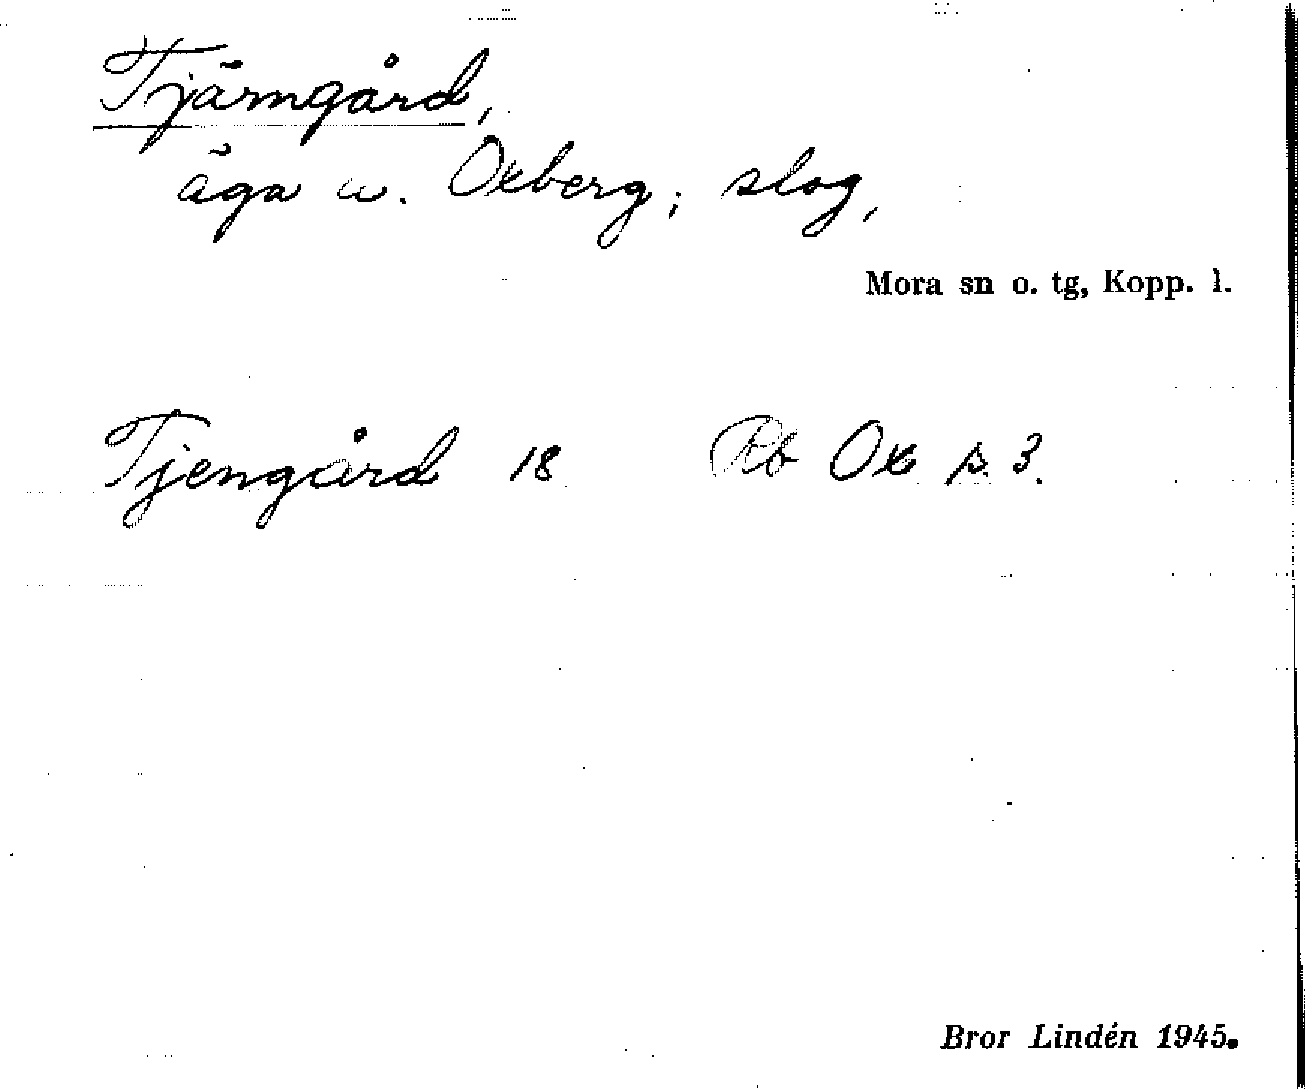 Tjärngård,
äga u. Oxberg; slog,
Mora sn o. tg, Kopp. l.
Tjengård 18 Rb Ox s. 3.
Bror Lindén 1945.